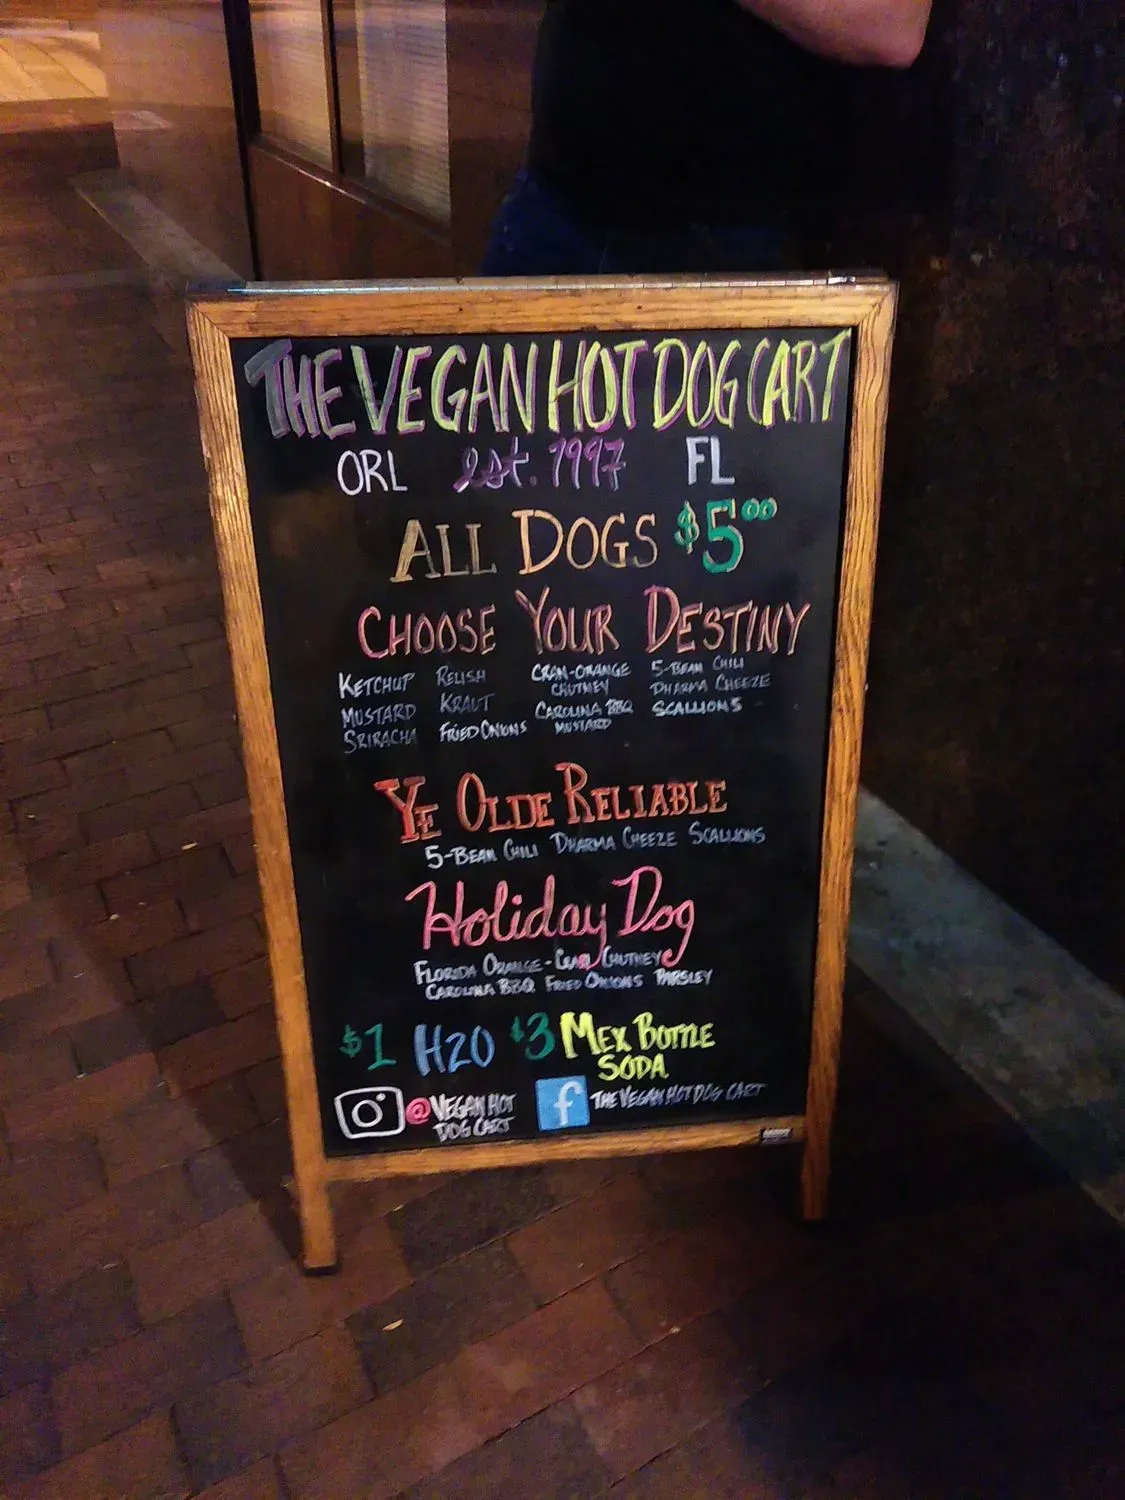 THE VEGAN HOT DOG CART
ORL est. 1997 FL
ALL DOGS $5.00
CHOOSE YOUR DESTINY
KETCHUP RELISH CRAN-ORANGE 5-BEAN CHILI
CHUTNEY DHARMA CHEEZE
MUSTARD KRAUT CAROLINA BBQ SCALLIONS
SRIRACHA FRIED ONIONS MUSTARD
YE OLDE RELIABLE
5-BEAN CHILI DHARMA CHEEZE SCALLIONS
Holiday Dog
FLORIDA ORANGE-CRAN CHUTNEY
CAROLINA BBQ FRIED ONIONS PARSLEY
$1 H2O $3 MEX BOTTLE
SODA
@VEGAN HOT f THE VEGAN HOT DOG CART
DOG CART